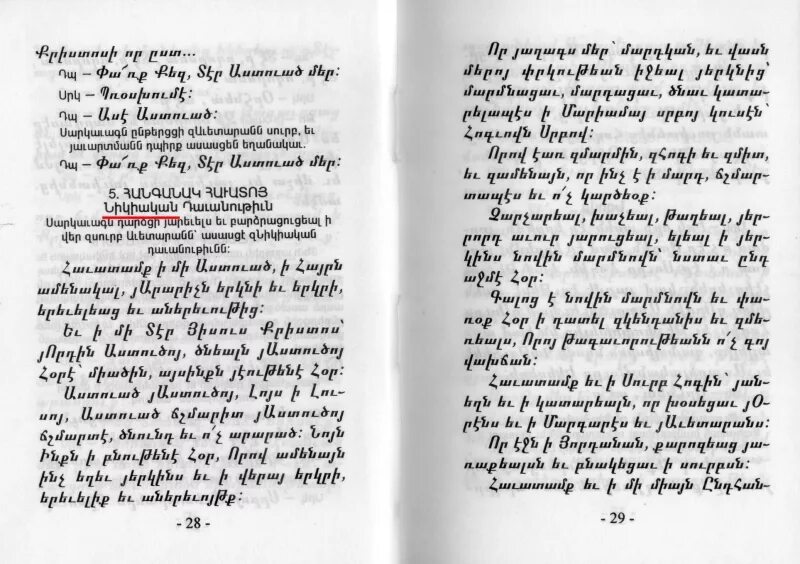 Քրիստոսի որ ըստ...
Դպ – Փա՜ռք Քեզ, Տէր Աստուած մեր:
Սրկ – Պռօսխումէ:
Դպ – Ասէ Աստուած:
Սարկաւագն ընթերցցի զԱւետարանն սուրբ, եւ
յաւարտմանն դպիրք ասասցեն եղանակաւ.
Դպ – Փա՜ռք Քեզ, Տէր Աստուած մեր:
5. ՀԱՆԳԱՆԱԿ ՀԱՒԱՏՈՅ
Նիկիական Դաւանութիւն
Սարկաւագն դարձցի յարեւելս եւ բարձրացուցեալ ի
վեր զսուրբ Աւետարանն՝ ասասցէ զՆիկիական
դաւանութիւնն:
Հաւատամք ի մի Աստուած, ի Հայրն
ամենակալ, յԱրարիչն երկնի եւ երկրի,
երեւելեաց եւ աներեւութից:
Եւ ի մի Տէր Յիսուս Քրիստոս՝
յՈրդին Աստուծոյ, ծնեալն յԱստուծոյ
Հօրէ՝ միածին, այսինքն յէութենէ Հօր:
Աստուած յԱստուծոյ, Լոյս ի Լու-
սոյ, Աստուած ճշմարիտ յԱստուծոյ
ճշմարտէ, ծնունդ եւ ո՛չ արարած: Նոյն
Ինքն ի բնութենէ Հօր, Որով ամենայն
ինչ եղեւ յերկինս եւ ի վերայ երկրի,
երեւելիք եւ աներեւոյթք:
- 28 -
Որ յաղագս մեր՝ մարդկան, եւ վասն
մերոյ փրկութեան իջեալ յերկնից՝
մարմնացաւ, մարդացաւ, ծնաւ կատա-
րելապէս ի Մարիամայ սրբոյ կուսէն՝
Հոգւովն Սրբով:
Որով էառ զմարմին, զհոգի եւ զմիտ,
եւ զամենայն, որ ինչ է ի մարդ, ճշմար-
տապէս եւ ո՛չ կարծեօք:
Չարչարեալ, խաչեալ, թաղեալ, յեր-
րորդ աւուր յարուցեալ, ելեալ ի յեր-
կինս նովին մարմնովն՝ նստաւ ընդ
աջմէ Հօր:
Գալոց է նովին մարմնովն եւ փա-
ռօք Հօր ի դատել զկենդանիս եւ զմե-
ռեալս, Որոյ թագաւորութեանն ո՛չ գոյ
վախճան:
Հաւատամք եւ ի Սուրբ Հոգին՝ յան-
եղն եւ ի կատարեալն, որ խօսեցաւ յՕ-
րէնս եւ ի Մարգարէս եւ յԱւետարանս:
Որ էջն ի Յորդանան, քարոզեաց յա-
ռաքեալսն եւ բնակեցաւ ի սուրբսն:
Հաւատամք եւ ի մի միայն Ընդհան-
- 29 -